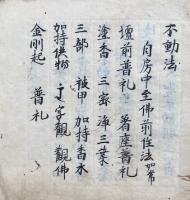 不動法
自房中至佛前住法如常
壇前普礼 著座普礼
塗香 三密 淨三業
三部 被甲 加持香水
加持供物 文字觀 觀佛
金剛起 普礼